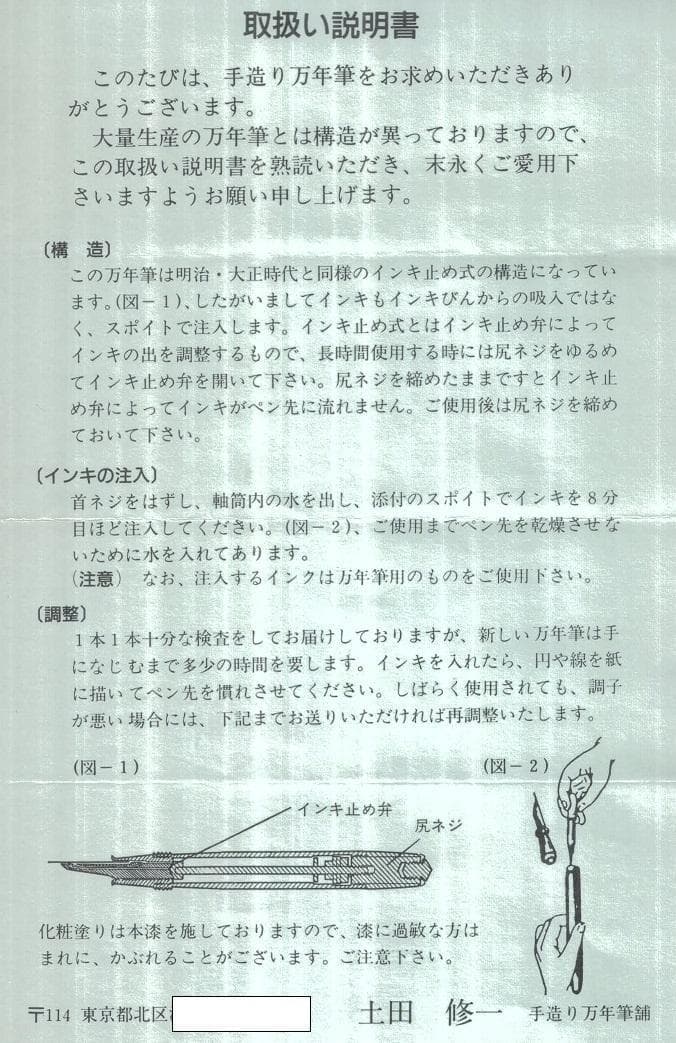 取扱い説明書
このたびは、手造り万年筆をお求めいただきあり
がとうございます。
大量生産の万年筆とは構造が異っておりますので、
この取扱い説明書を熟読いただき、末永くご愛用下
さいますようお願い申し上げます。
〔構　造〕
この万年筆は明治・大正時代と同様のインキ止め式の構造になってい
ます。(図－１)、したがいましてインキもインキびんからの吸入ではな
く、スポイトで注入します。インキ止め式とはインキ止め弁によって
インキの出を調整するもので、長時間使用する時には尻ネジをゆるめ
てインキ止め弁を開いて下さい。尻ネジを締めたままですとインキ止
め弁によってインキがペン先に流れません。ご使用後は尻ネジを締め
ておいて下さい。
〔インキの注入〕
首ネジをはずし、軸筒内の水を出し、添付のスポイトでインキを８分
目ほど注入してください。(図－２)、ご使用までペン先を乾燥させな
いために水を入れてあります。
（注意）　なお、注入するインクは万年筆用のものをご使用下さい。
〔調整〕
１本１本十分な検査をしてお届けしておりますが、新しい万年筆は手
になじむまで多少の時間を要します。インキを入れたら、円や線を紙
に描いてペン先を慣れさせてください。しばらく使用されても、調子
が悪い場合には、下記までお送りいただければ再調整いたします。
(図－１)
(図－２)
インキ止め弁
尻ネジ
化粧塗りは本漆を施しておりますので、漆に過敏な方は
まれに、かぶれることがございます。ご注意下さい。
〒114 東京都北区
土田　修一　手造り万年筆舗